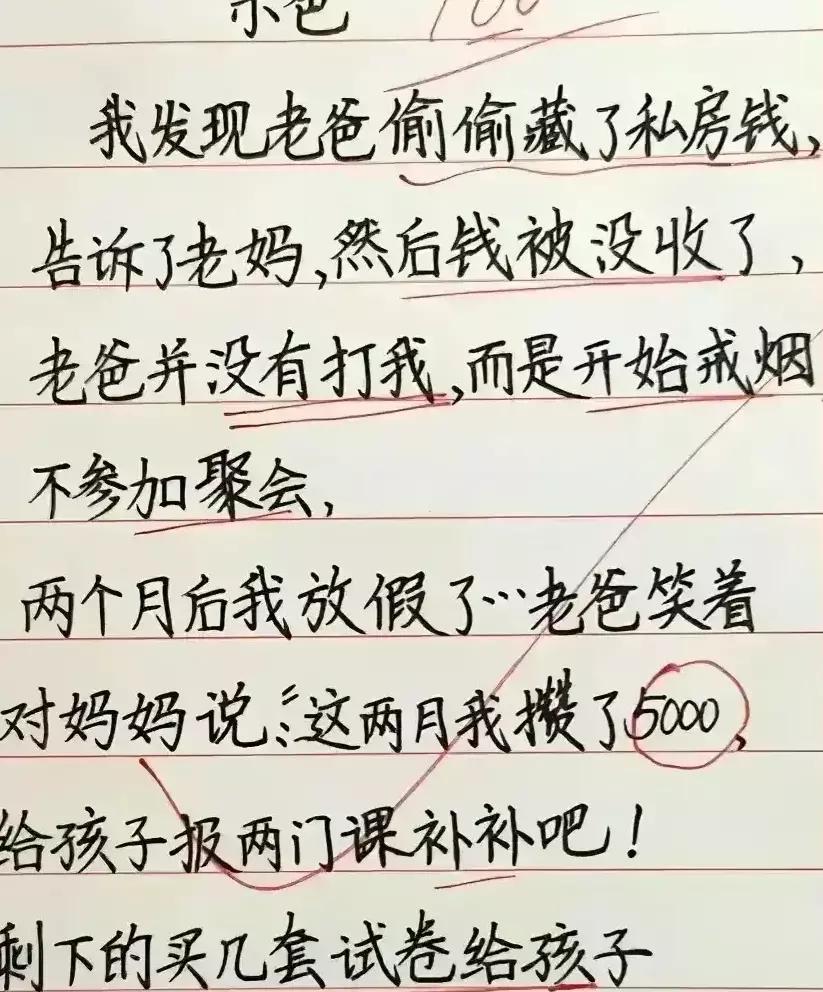 100
我发现老爸偷偷藏了私房钱,
告诉了老妈,然后钱被没收了,
老爸并没有打我,而是开始戒烟
不参加聚会,
两个月后我放假了…老爸笑着
对妈妈说:“这两月我攒了5000,
给孩子报两门课补补吧!
剩下的买几套试卷给孩子